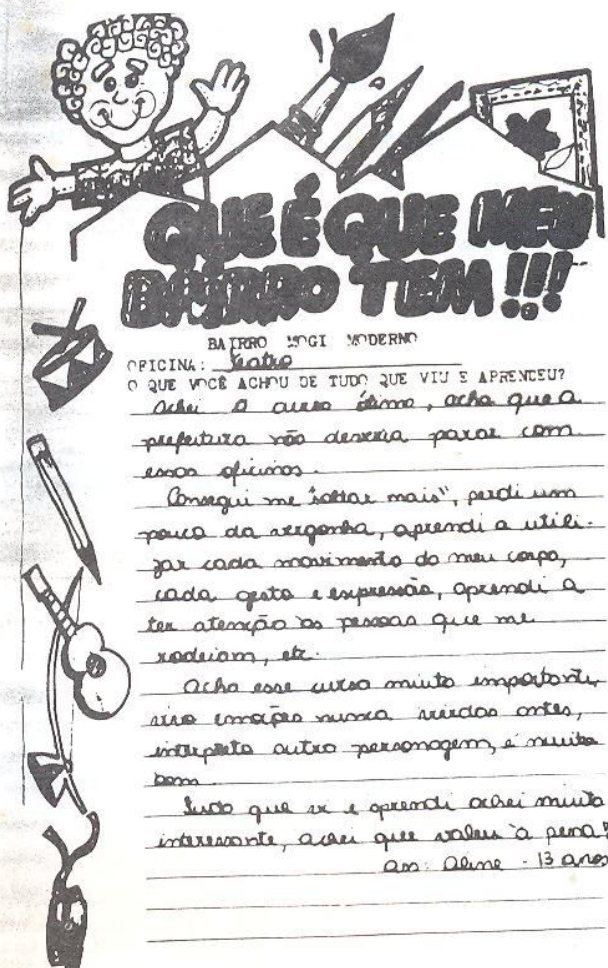 QUE É QUE MEU
BAIRRO TEM!!!
BAIRRO MOGI MODERNO
OFICINA: Teatro
O QUE VOCÊ ACHOU DE TUDO QUE VIU E APRENDEU?
Achei o curso ótimo, acho que a
prefeitura não deveria parar com
essas oficinas.
Consegui me "soltar mais", perdi um
pouco da vergonha, aprendi a utili-
zar cada movimento do meu corpo,
cada gesto e expressão, aprendi a
ter atenção às pessoas que me
rodeiam, etc.
Acho esse curso muito importante,
vivo emoções nunca vividas antes,
interpreto outro personagem, é muito
bom
Tudo que vi e aprendi achei muito
interessante, achei que valeu à pena!
Ass: Aline - 13 anos